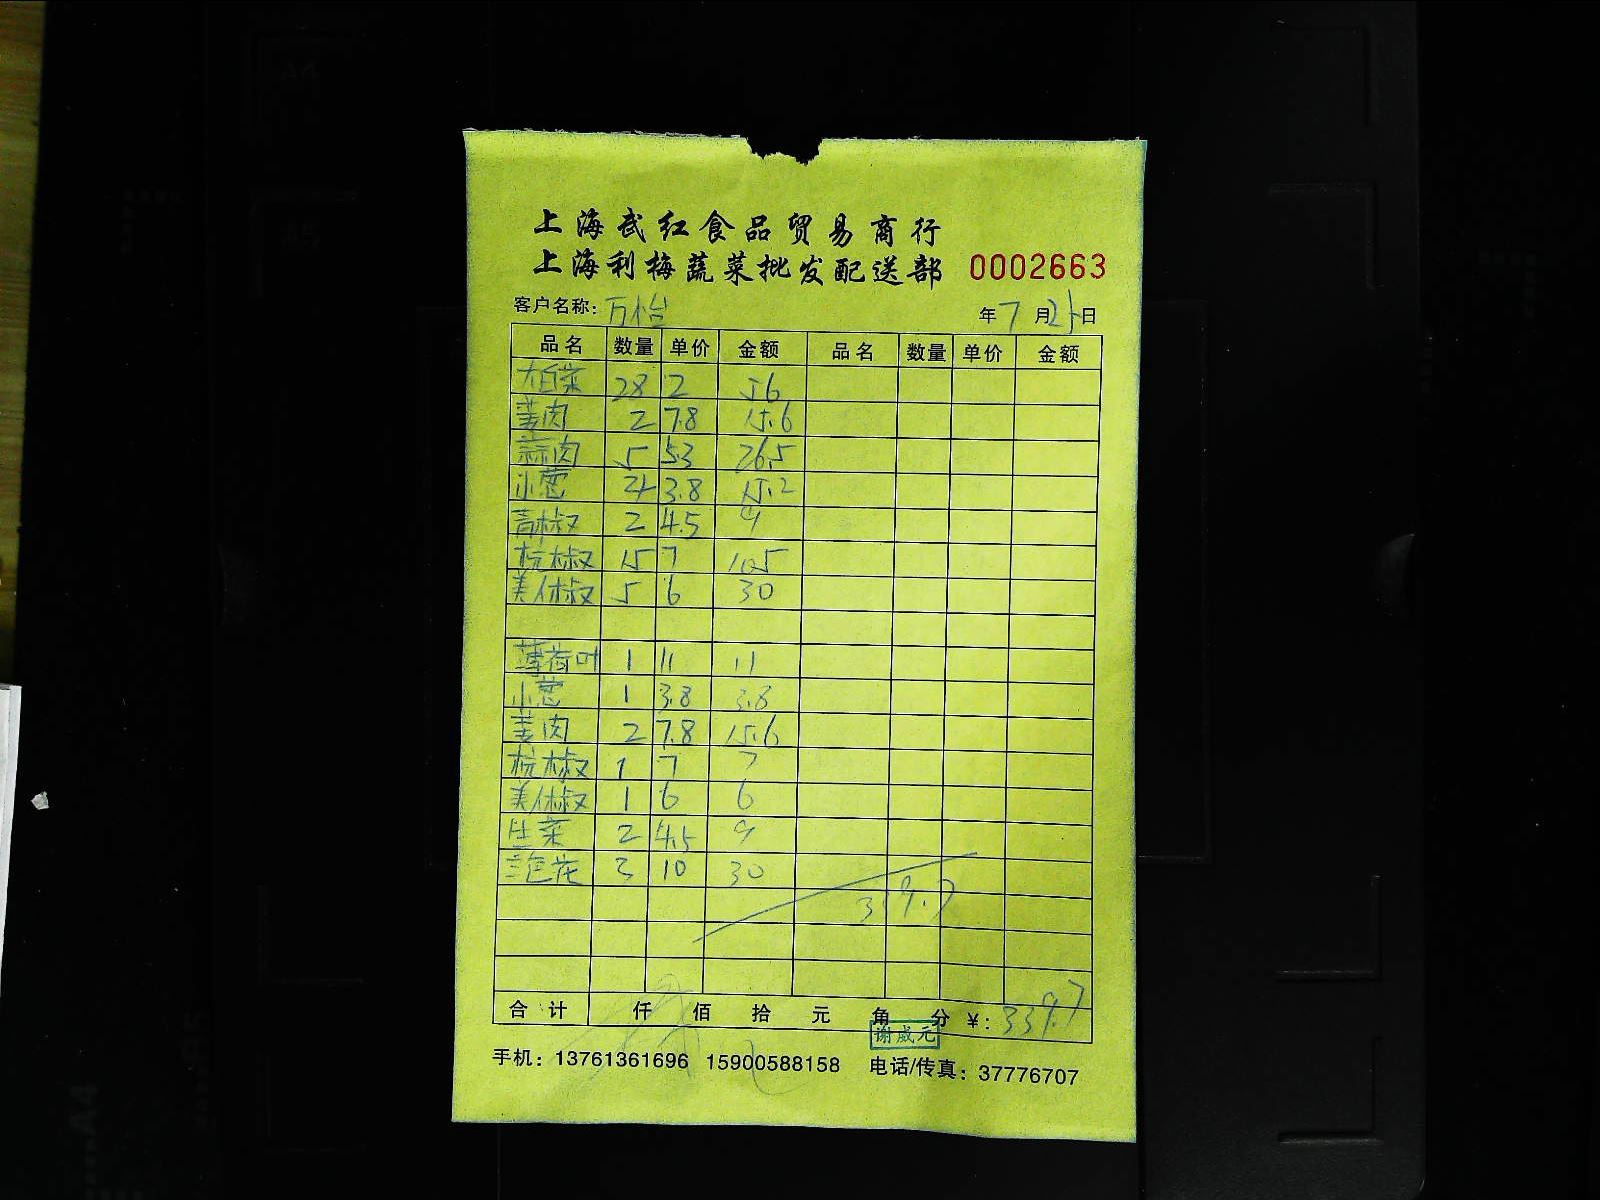 上海武红食品贸易商行
上海利梅蔬菜批发配送部 0002663
客户名称: 万怡 年 7 月 25 日
品名 数量 单价 金额 品名 数量 单价 金额
大白菜 28 2 56
姜肉 2 7.8 15.6
蒜肉 5 53 26.5
小葱 4 3.8 15.2
青椒 2 4.5 9
杭椒 15 7 105
美人椒 5 6 30
薄荷叶 1 11 11
小葱 1 3.8 3.8
姜肉 2 7.8 15.6
杭椒 1 7 7
美人椒 1 6 6
生菜 2 4.5 9
三色花 3 10 30
319.7
合计 仟 佰 拾 元 角 分 ¥: 339.7
谢威元
手机: 13761361696 15900588158 电话/传真: 37776707